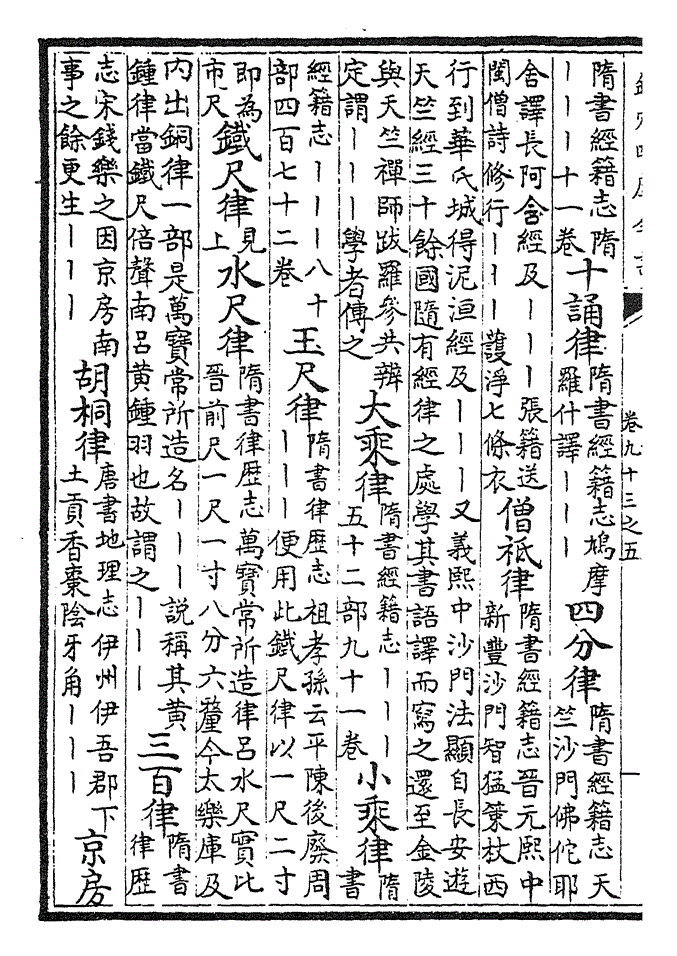 欽定四庫全書
卷九十三之五
一
隋書經籍志隋
丨丨丨十一卷
十誦律
隋書經籍志鳩摩
羅什譯丨丨丨
四分律
隋書經籍志天
竺沙門佛佗耶
舍譯長阿含經及丨丨丨張籍送
閩僧詩修行丨丨丨護淨七條衣
僧祗律
隋書經籍志晉元熙中
新豐沙門智猛策杖西
行到華氏城得泥洹經及丨丨丨又義熙中沙門法顯自長安遊
天竺經三十餘國隨有經律之處學其書語譯而寫之還至金陵
與天竺禪師跋羅參共辨
定謂丨丨丨學者傳之
大乘律
隋書經籍志丨丨丨
五十二部九十一卷
小乘律
隋
書
經籍志丨丨丨八十
部四百七十二卷
玉尺律
隋書律歴志祖孝孫云平陳後廢周
丨丨丨便用此鐵尺律以一尺二寸
即為
市尺
鐵尺律
見
上
水尺律
隋書律歴志萬寶常所造律呂水尺實比
晉前尺一尺一寸八分六釐今太樂庫及
內出銅律一部是萬寶常所造名丨丨丨說稱其黃
鍾律當鐵尺倍聲南呂黃鍾羽也故謂之丨丨丨
三百律
隋書
律歴
志宋錢樂之因京房南
事之餘更生丨丨丨
胡桐律
唐書地理志伊州伊吾郡下
土貢香棗陰牙角丨丨丨
京房